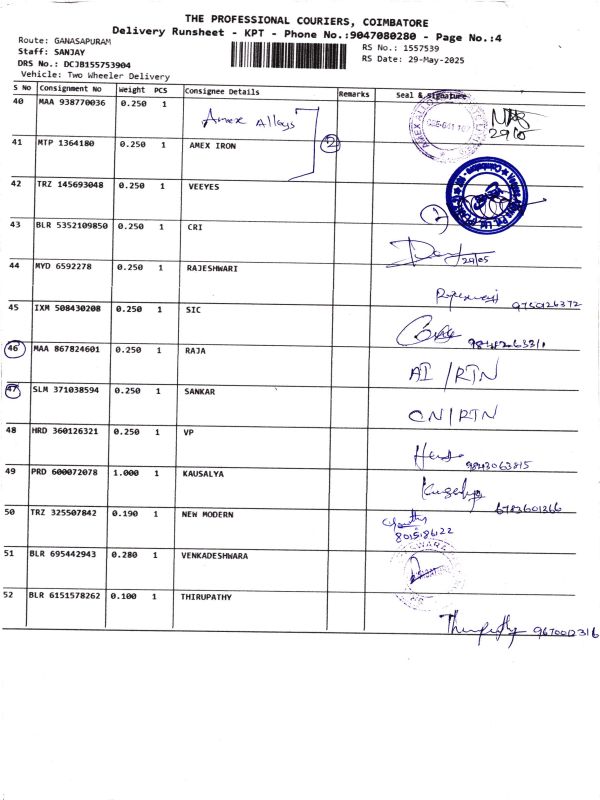 THE PROFESSIONAL COURIERS, COIMBATORE
Delivery Runsheet - KPT - Phone No.:9047080280 - Page No.:4
Route: GANASAPURAM
RS No.: 1557539
Staff: SANJAY
RS Date: 29-May-2025
DRS No.: DCJB155753904
Vehicle: Two Wheeler Delivery
S No Consignment No Weight PCS Consignee Details Remarks Seal & Signature
40 MAA 938770036 0.250 1 Amex Alloys
29/05
41 MTP 1364180 0.250 1 AMEX IRON 2
42 TRZ 145693048 0.250 1 VEEYES
43 BLR 5352109850 0.250 1 CRI 29/05
44 MYD 6592278 0.250 1 RAJESHWARI
9750126372
45 IXM 508430208 0.250 1 SIC
46 MAA 867824601 0.250 1 RAJA AI/RTN
47 SLM 371038594 0.250 1 SANKAR CN/RTN
48 HRD 360126321 0.250 1 VP
9842063815
49 PRD 600072078 1.000 1 KAUSALYA
6783601266
50 TRZ 325507842 0.190 1 NEW MODERN
51 BLR 695442943 0.280 1 VENKADESHWARA
52 BLR 6151578262 0.100 1 THIRUPATHY
9670012316